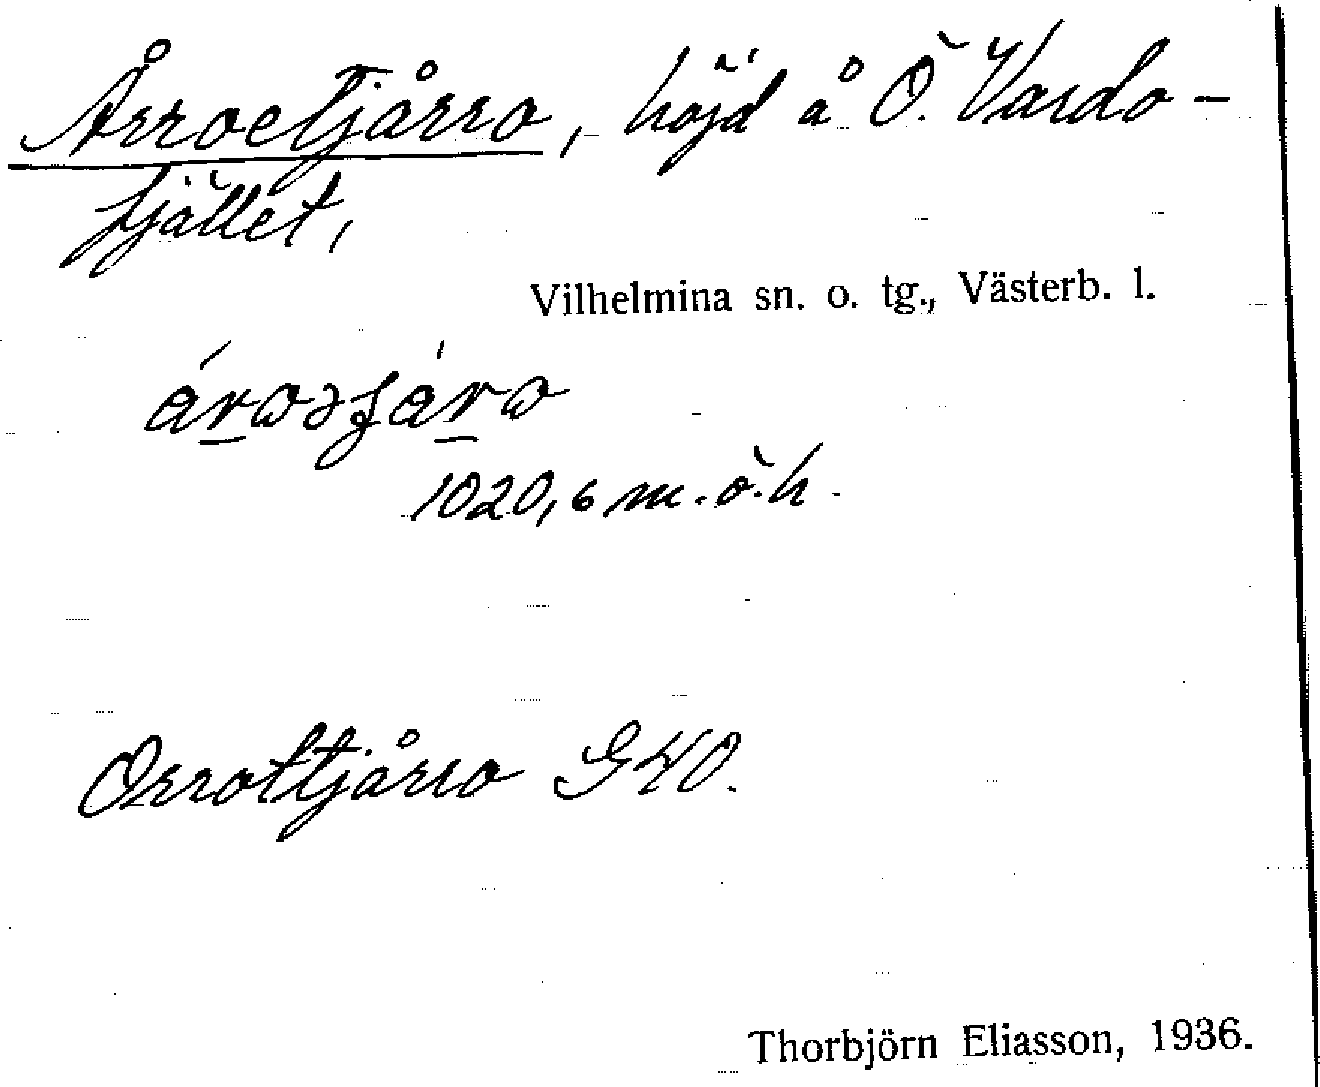 Årroetjårro, höjd å Ö. Vardo-
fjället,
Vilhelmina sn. o. tg., Västerb. l.
1020,6 m.ö.h.
Orrottjårro GKO.
Thorbjörn Eliasson, 1936.